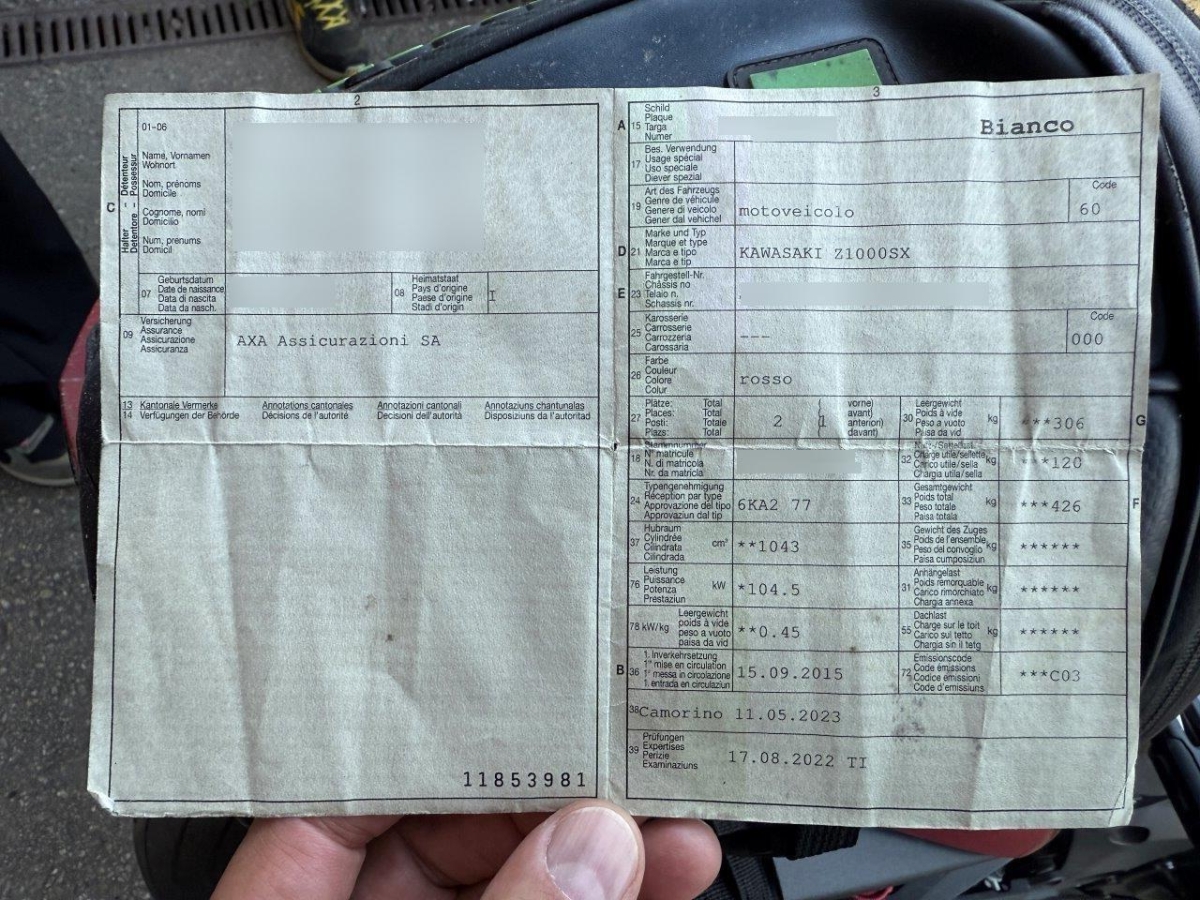 2
01-06
C
Halter - Détenteur
Detentore - Possessur
Name, Vornamen
Wohnort
Nom, prénoms
Domicile
Cognome, nomi
Domicilio
Num, prenums
Domicil
07
Geburtsdatum
Date de naissance
Data di nascita
Data da nasch.
08
Heimatstaat
Pays d'origine
Paese d'origine
Stadi d'origin
I
09
Versicherung
Assurance
Assicurazione
Assicuranza
AXA Assicurazioni SA
13 Kantonale Vermerke
14 Verfügungen der Behörde
Annotations cantonales
Décisions de l'autorité
Annotazioni cantonali
Decisioni dell'autorità
Annotaziuns chantunalas
Disposiziuns da l'autoritad
11853981
3
A
15
Schild
Plaque
Targa
Numer
Bianco
17
Bes. Verwendung
Usage spécial
Uso speciale
Diever spezial
19
Art des Fahrzeugs
Genre de véhicule
Genere di veicolo
Gener dal vehichel
motoveicolo
Code
60
D
21
Marke und Typ
Marque et type
Marca e tipo
Marca e tip
KAWASAKI Z1000SX
E
23
Fahrgestell-Nr.
Châssis no
Telaio n.
Schassis nr.
25
Karosserie
Carrosserie
Carrozzeria
Carossaria
---
Code
000
26
Farbe
Couleur
Colore
Colur
rosso
27
Plätze: Total
Places: Total
Posti: Totale
Plazs: Total
2
( vorne)
( avant)
( anteriori)
( davant)
1
30
Leergewicht
Poids à vide
Peso a vuoto
Paisa da vid
kg
***306
G
18
Stammnummer
N° matricule
N. di matricola
Nr. da matricla
32
Charge utile/sellette
Carico utile/sella
Chargia utila/sella
kg
***120
24
Typengenehmigung
Réception par type
Approvazione del tipo
Approvaziun dal tip
6KA2 77
33
Gesamtgewicht
Poids total
Peso totale
Paisa totala
kg
***426
F
37
Hubraum
Cylindrée
Cilindrata
Cilindrada
cm³
**1043
35
Gewicht des Zuges
Poids de l'ensemble
Peso del convoglio
Paisa cumposiziun
kg
******
76
Leistung
Puissance
Potenza
Prestaziun
kW
*104.5
31
Anhängelast
Poids remorquable
Carico rimorchiato
Chargia annexa
kg
******
78 kW/kg
Leergewicht
poids à vide
peso a vuoto
paisa da vid
**0.45
55
Dachlast
Charge sur le toit
Carico sul tetto
Chargia sin il tetg
kg
******
B
36
1. Inverkehrsetzung
1re mise en circulation
1a messa in circolazione
1. entrada en circulaziun
15.09.2015
72
Emissionscode
Code émissions
Codice emissioni
Code d'emissiuns
***C03
38
Camorino 11.05.2023
39
Prüfungen
Expertises
Perizie
Examinaziuns
17.08.2022 TI